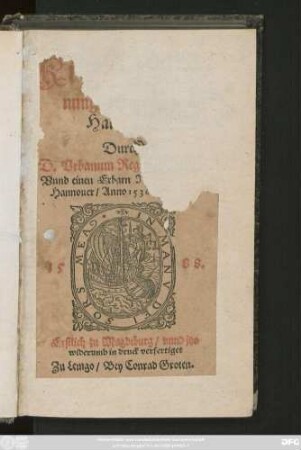 Ha
Durch
D. Vrbanum Reg
Vnnd einen Erbarn
Hannouer / Anno 153
IN MANV DEI SORS MEA
15 88.
Erstlich zu Magdeburg / vnnd jtzo
widerumb in druck verfertiget
Zu Lemgo / Bey Conrad Groten.